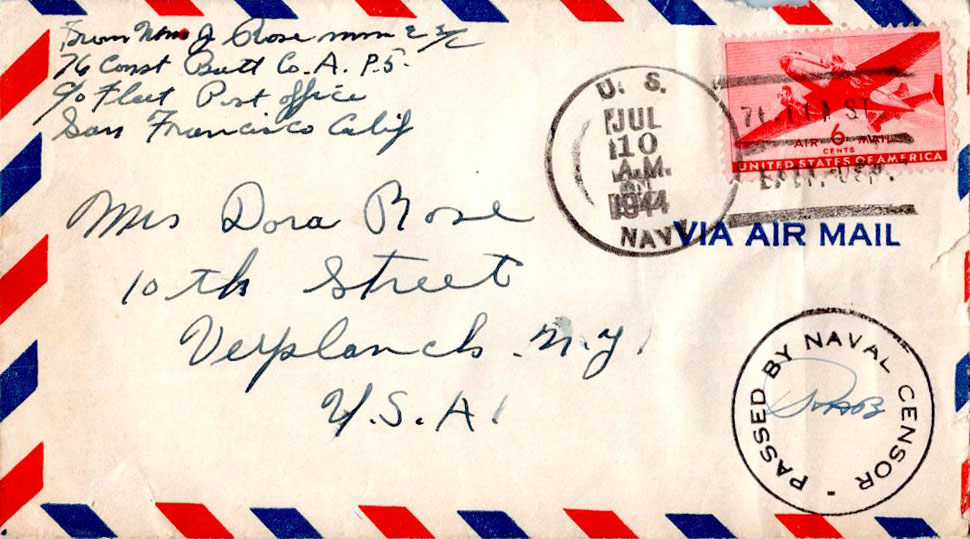 From Wm J Rose mm 2 2/c
76 Const Batt Co. A. P. 5.
c/o Fleet Post office
San Francisco Calif
U. S.
JUL
10
A.M.
1944
NAVY
AIR 6 MAIL
CENTS
UNITED STATES OF AMERICA
VIA AIR MAIL
Mrs Dora Rose
10th Street
Verplanck. N.Y.
U.S.A.
PASSED BY NAVAL CENSOR